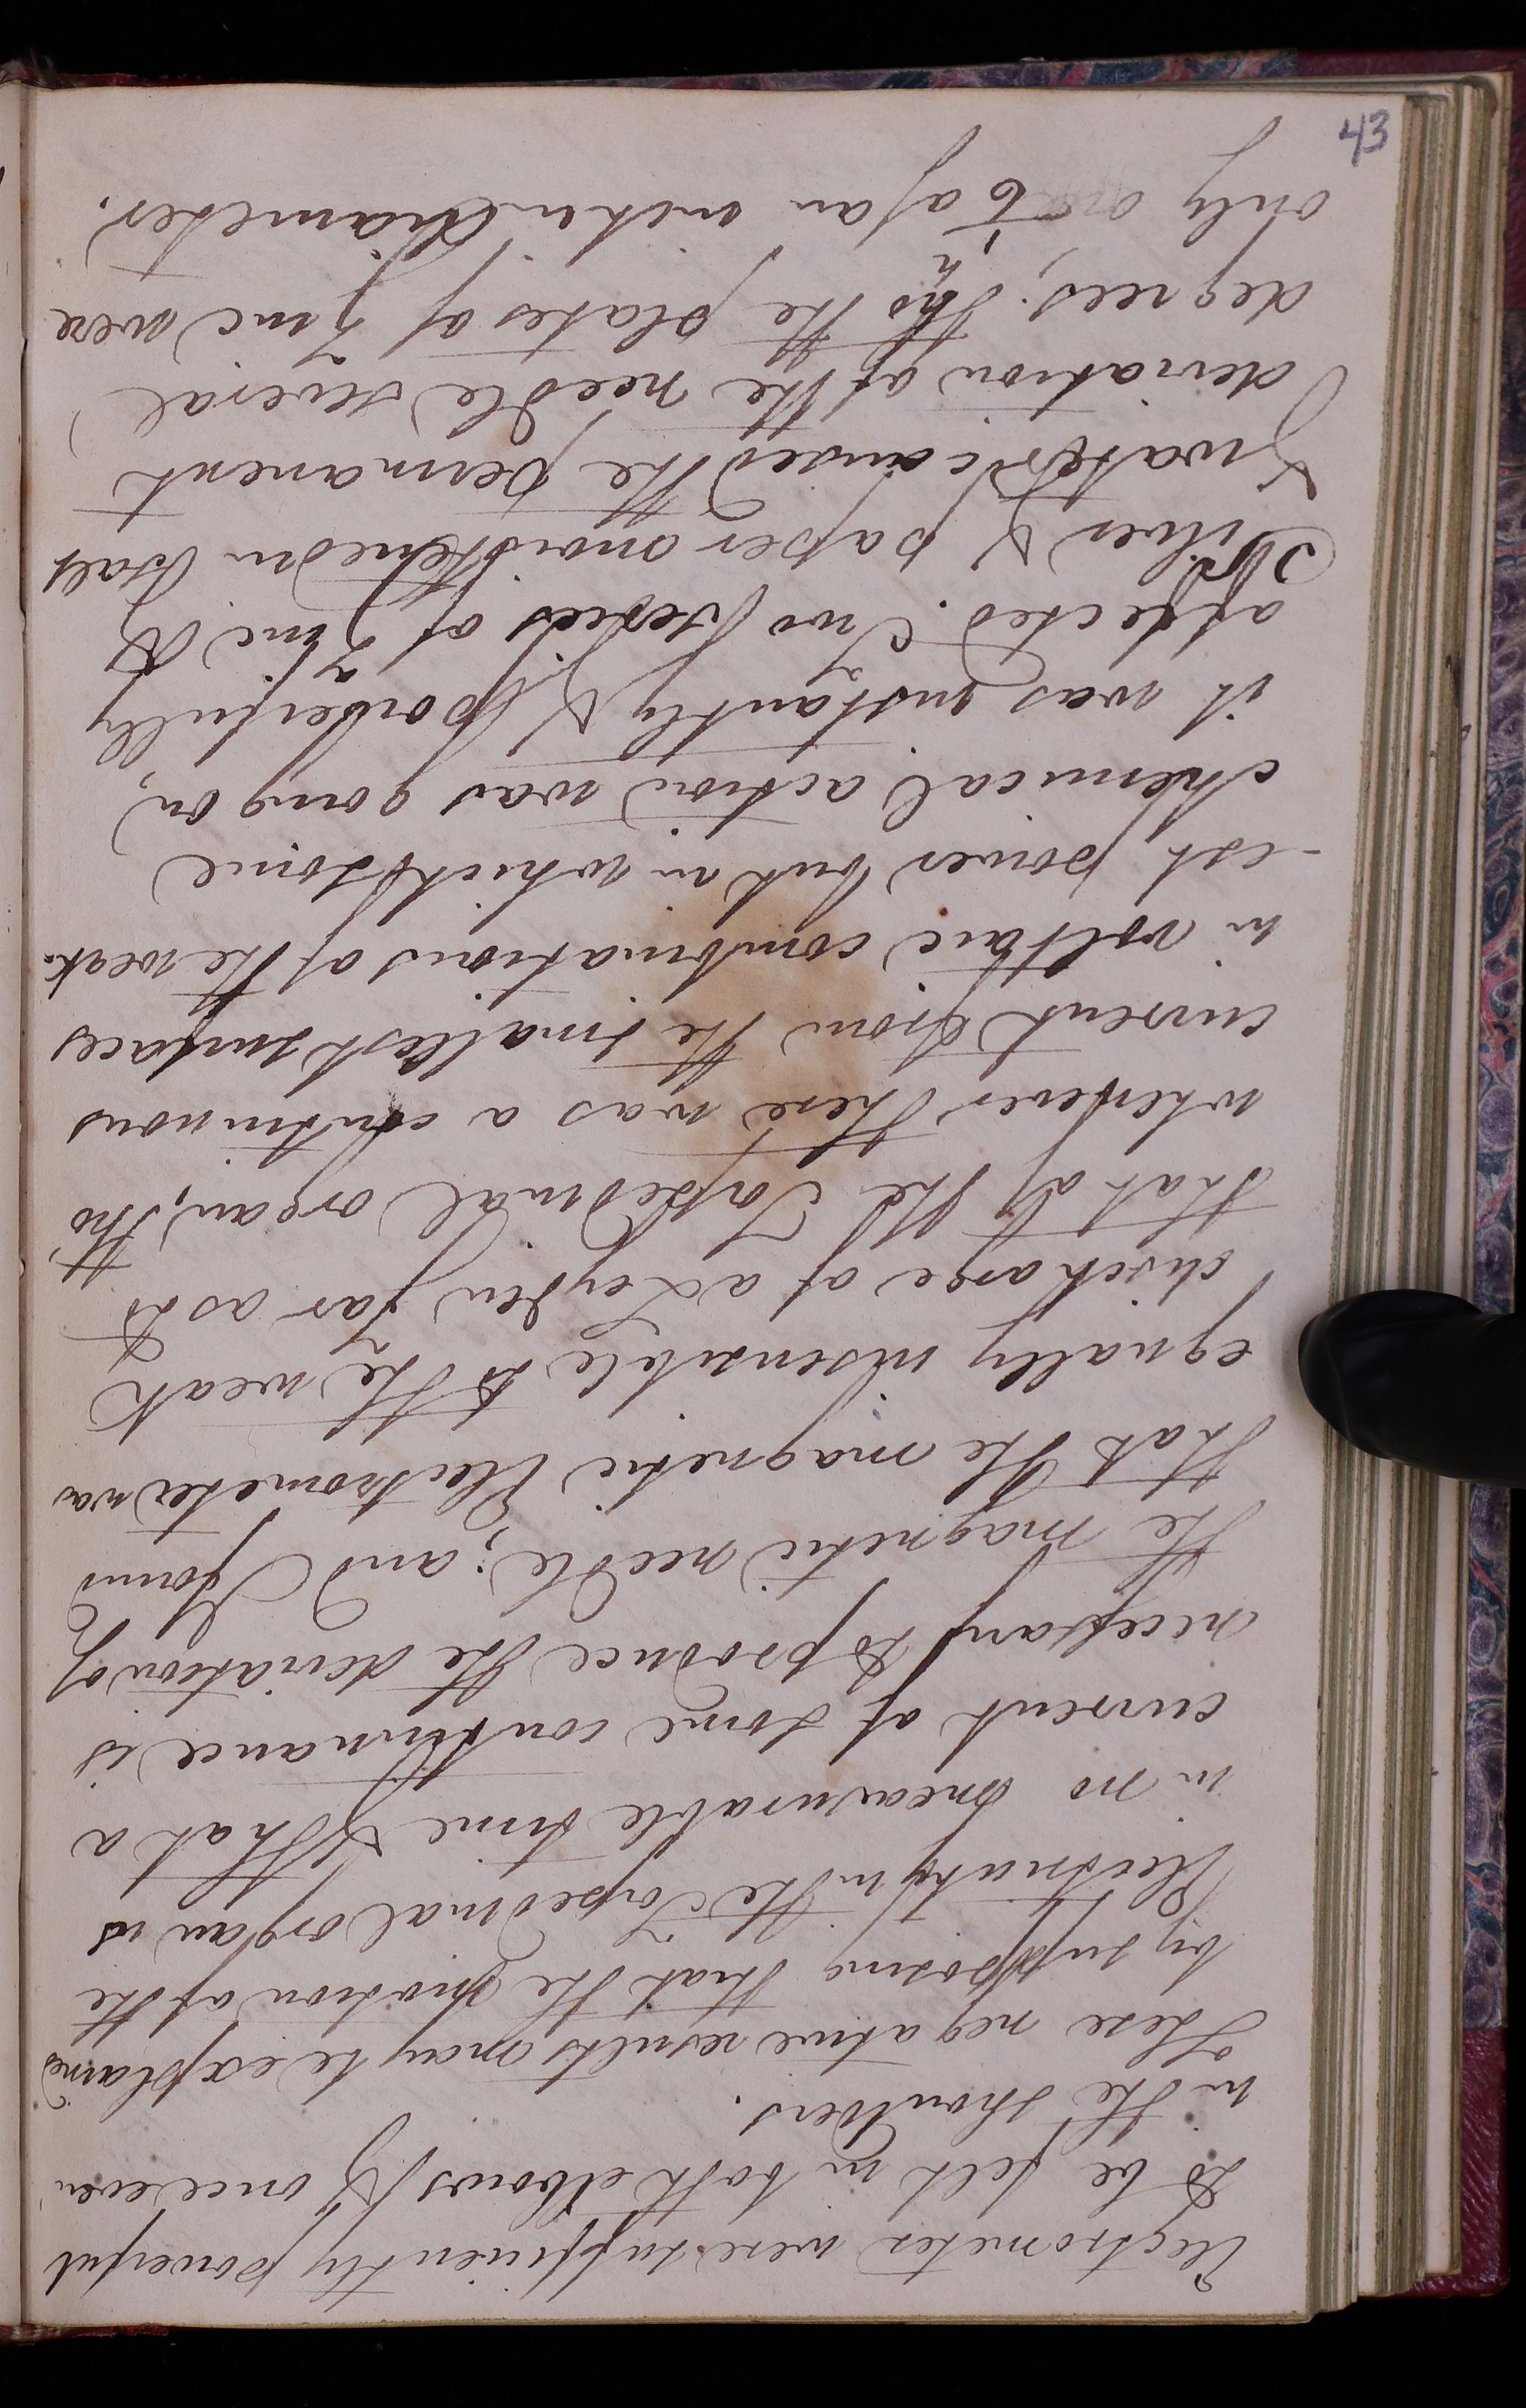 Electrometer were sufficiently powerful
to be felt in both elbows & once even
in the shoulders.
These negative results may be explained
by supposing that the motion of the
Electricity in the Torpedinal organ is
in no measurable time & that a
current of some continuance is
necessary to produce the deviation of
the magnetic needle; and I found
that the magnetic Electrometer was
equally insensible to the weak
discharge of a Leyden jar as to
that of the Torpedinal organ; tho
whenever there was a continuous
current from the smallest surfaces
in voltaic combinations of the weak-
-est power but in which some
chemical action was going on,
it was instantly & powerfully
affected. Two series of Zinc &
Silver & paper moistened in Salt
& water caused the permanent
deviation of the needle several
degrees, tho the plates of Zinc were
only 1/6 of an inch in diameter.
43